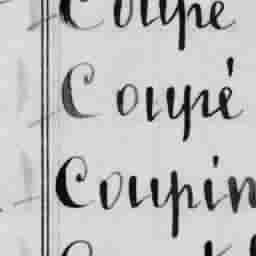 Coupé
Coupé
Coupin